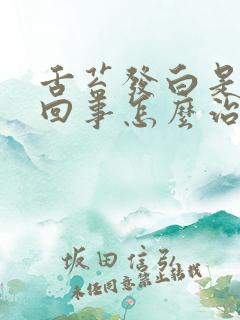 舌苔發白是
回事怎麼治
坂田信弘
未经同意禁止转载